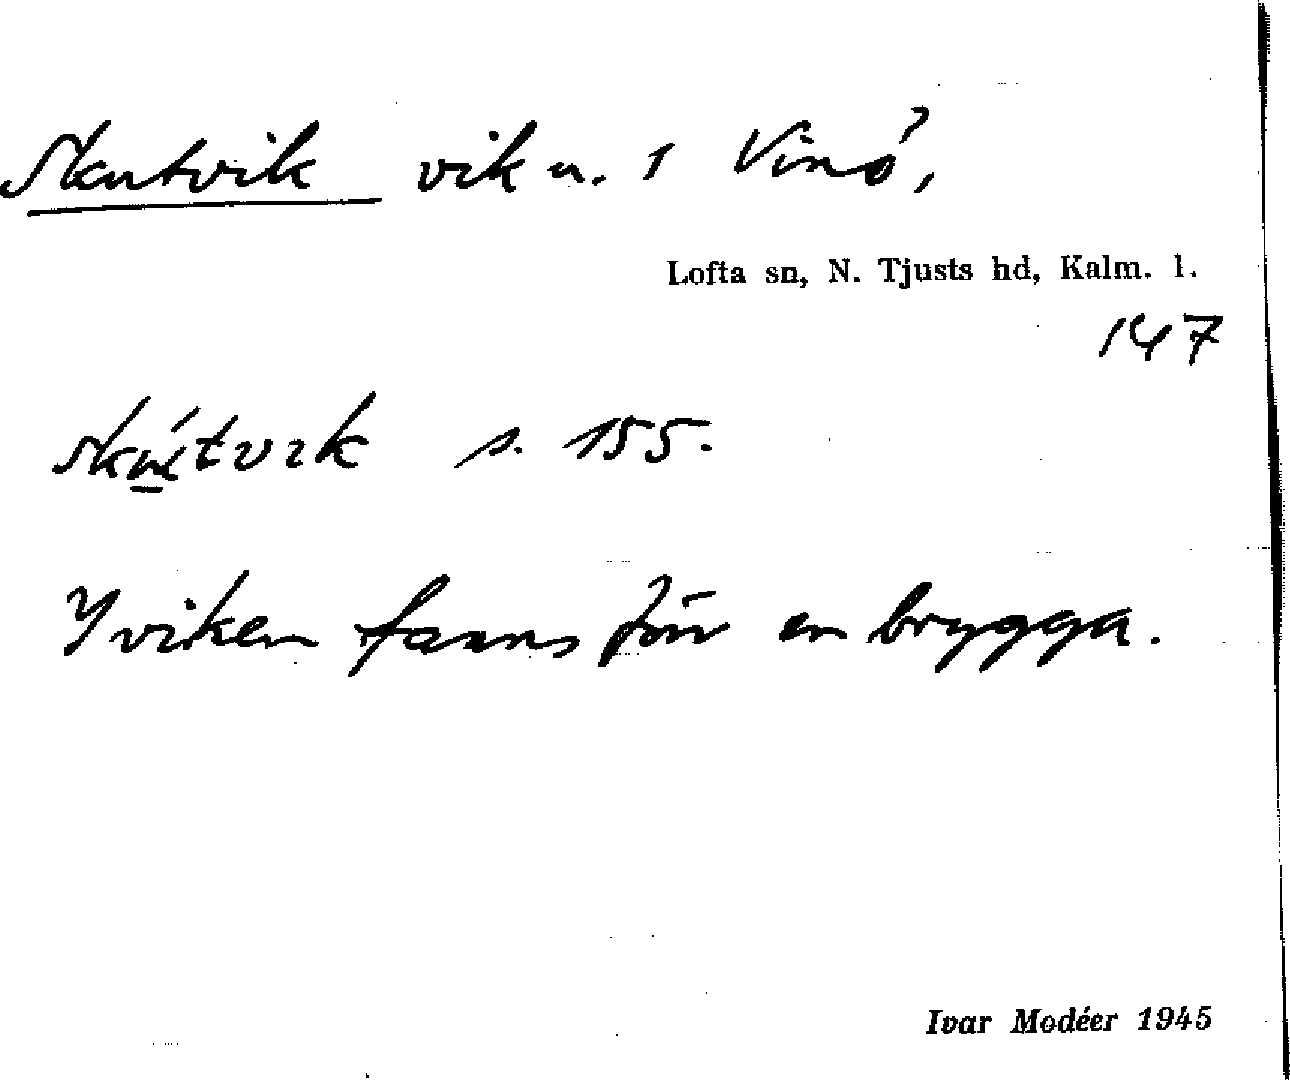 Skutvik vik n. 1 Vinö,
Lofta sn, N. Tjusts hd, Kalm. l.
147
s. 155.
I viken fanns förr en brygga.
Ivar Modéer 1945